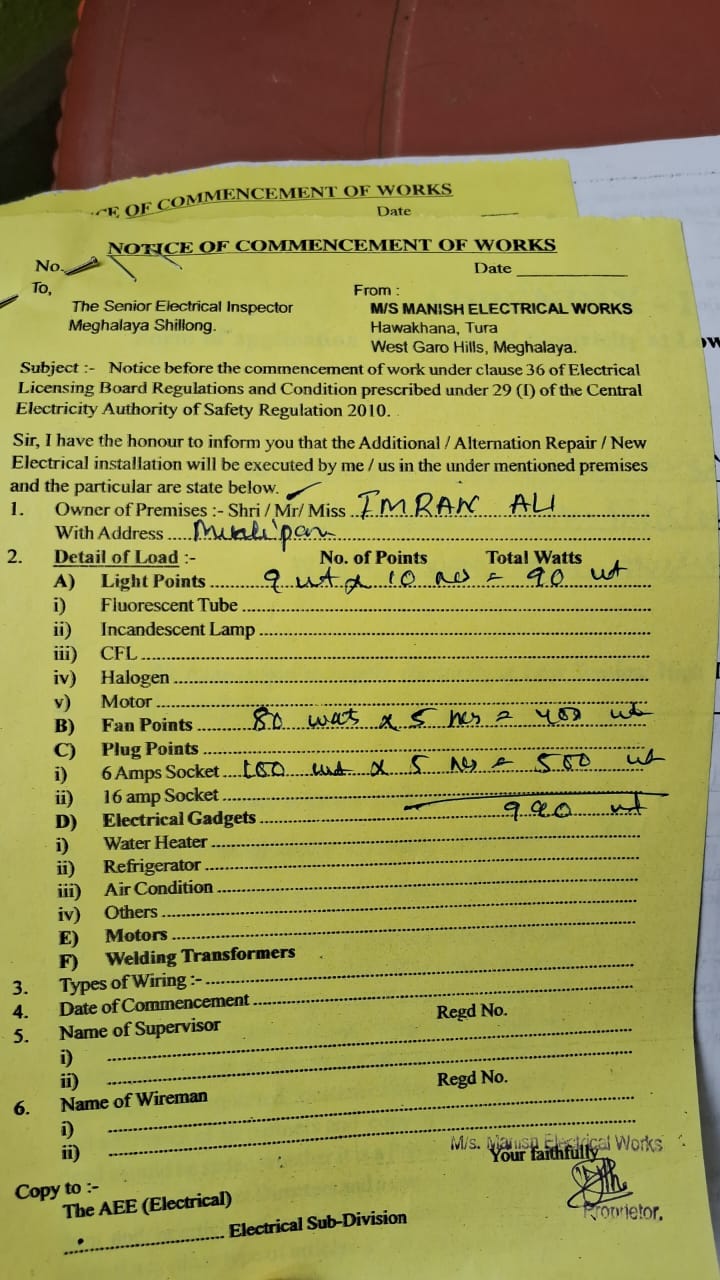 CE OF COMMENCEMENT OF WORKS
Date
NOTICE OF COMMENCEMENT OF WORKS
No.
Date
To,
From :
The Senior Electrical Inspector
M/S MANISH ELECTRICAL WORKS
Meghalaya Shillong.
Hawakhana, Tura
West Garo Hills, Meghalaya.
Subject :- Notice before the commencement of work under clause 36 of Electrical
Licensing Board Regulations and Condition prescribed under 29 (I) of the Central
Electricity Authority of Safety Regulation 2010.
Sir, I have the honour to inform you that the Additional / Alternation Repair / New
Electrical installation will be executed by me / us in the under mentioned premises
and the particular are state below.
1. Owner of Premises :- Shri / Mr/ Miss IMRAN ALI
With Address
2. Detail of Load :- No. of Points Total Watts
A) Light Points 9 wt x 10 = 90 wt
i) Fluorescent Tube
ii) Incandescent Lamp
iii) CFL
iv) Halogen
v) Motor
B) Fan Points 80 x 5 = 400 wt
C) Plug Points
i) 6 Amps Socket 100 wt x 5 = 500 wt
ii) 16 amp Socket
D) Electrical Gadgets 990 wt
i) Water Heater
ii) Refrigerator
iii) Air Condition
iv) Others
E) Motors
F) Welding Transformers
3. Types of Wiring :-
4. Date of Commencement
5. Name of Supervisor Regd No.
i)
ii)
6. Name of Wireman Regd No.
i)
ii)
M/s. Manish Electrical Works
Your faithfully
Proprietor.
Copy to :-
The AEE (Electrical)
Electrical Sub-Division